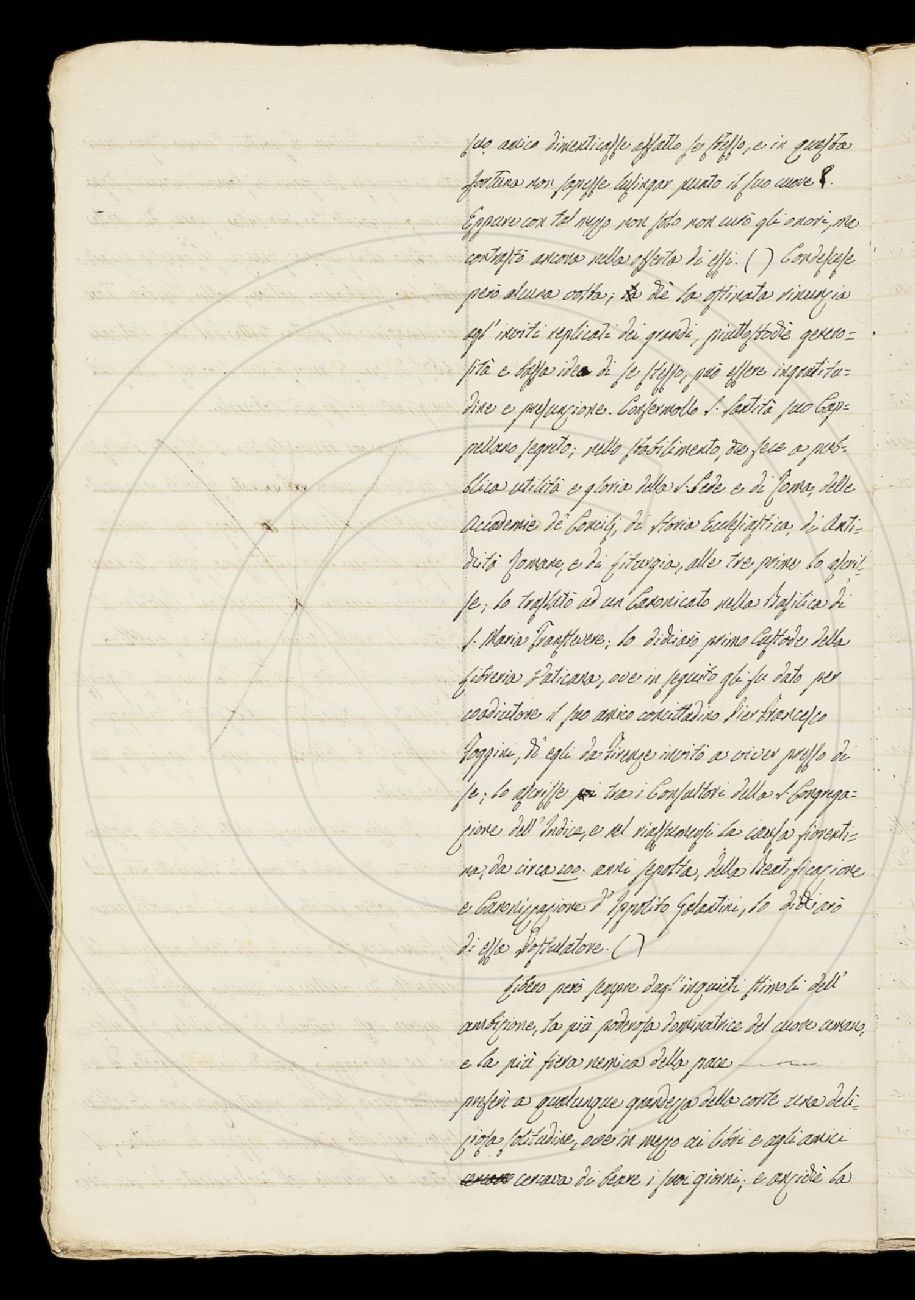 suo amico dimenticasse affatto se stesso, e in questa
fortuna non sapesse lusingar punto il suo cuore?.
Eppure con tal mezzo non solo non curò gli onori, ma
contrastò ancora nella offerta di essi. ( ) Condescese
però alcuna volta; chè la ostinata rinunzia
agl' inviti replicati dei grandi, piuttostochè genero=
sità e bassa idea di se stesso, può essere ingratitu=
dine e presunzione. Confermollo S. Santità suo Cap=
pellano segreto; nello stabilimento, che fece a pub=
blica utilità e gloria della S. Sede e di Roma, delle
Accademie de' Concilj, di Storia Ecclesiastica, di Anti=
chità Romane, e di Liturgia, alle tre prime lo ascris=
se; lo traslatò ad un Canonicato nella Basilica di
S. Maria Transtevere; lo dichiarò primo Custode della
Libreria Vaticana, ove in seguito gli fu dato per
coadiutore il suo amico concittadino Pier Francesco
Foggini, ch' egli da Firenze invitò a viver presso di
se; lo ascrisse poi tra i Consultori della S. Congrega=
zione dell' Indice, e nel riassumersi la causa fiorenti=
na, da circa 100. anni sepolta, della Beatificazione
e Canonizzazione d' Ippolito Galantini, lo dichiarò
di essa Postulatore. ( )
Libero però sempre dagl' inquieti stimoli dell'
ambizione, la più poderosa dominatrice del cuore umano,
e la più fiera nemica della pace
preferì a qualunque grandezza della corte una deli=
ziosa solitudine, ove in mezzo ai libri e agli amici
cercava di beare i suoi giorni; e anzichè la